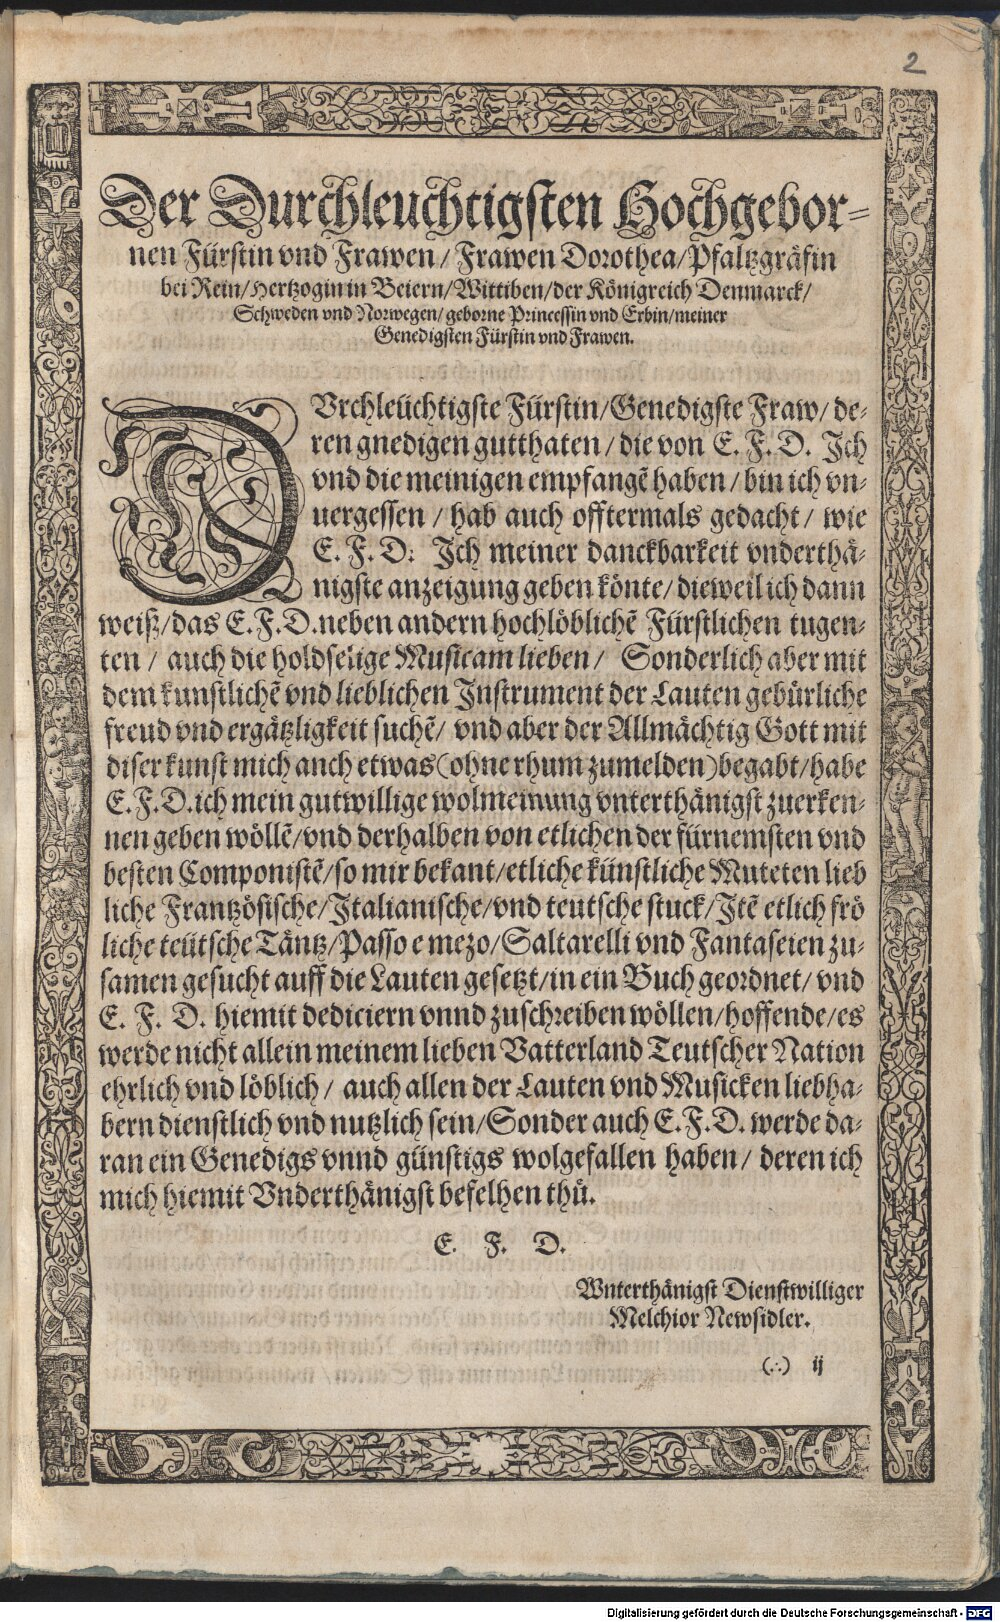 2
Der Durchleuchtigsten Hochgebor=
nen Fürstin vnd Frawen/ Frawen Dorothea/ Pfaltzgräfin
bei Rein/ Hertzogin in Beiern/ Wittiben/ der Königreich Denmarck/
Schweden vnd Norwegen/ geborne Princessin vnd Erbin/ meiner
Genedigsten Fürstin vnd Frawen.
DVrchleüchtigste Fürstin/ Genedigste Fraw/ de=
ren gnedigen gutthaten/ die von E. F. D. Ich
vnd die meinigen empfangẽ haben/ bin ich vn=
uergessen/ hab auch offtermals gedacht/ wie
E. F. D. Ich meiner danckbarkeit vnderthä=
nigste anzeigung geben könte/ dieweil ich dann
weiß/ das E. F. D. neben andern hochlöblichẽ Fürstlichen tugen=
ten/ auch die holdselige Musicam lieben/ Sonderlich aber mit
dem kunstlichẽ vnd lieblichen Instrument der Lauten gebürliche
freud vnd ergätzligkeit suchẽ/ vnd aber der Allmächtig Gott mit
diser kunst mich anch etwas (ohne rhum zumelden) begabt/ habe
E. F. D. ich mein gutwillige wolmeinung vnterthänigst zuerken=
nen geben wöllẽ/ vnd derhalben von etlichen der fürnemsten vnd
besten Componistẽ/ so mir bekant/ etliche künstliche Muteten lieb
liche Frantzösische/ Italianische/ vnd teutsche stuck/ Itẽ etlich frö
liche teütsche Täntz/ Passo e mezo/ Saltarelli vnd Fantaseien zu=
samen gesucht auff die Lauten gesetzt/ in ein Buch geordnet/ vnd
E. F. D. hiemit dediciern vnnd zuschreiben wöllen/ hoffende/ es
werde nicht allein meinem lieben Vatterland Teutscher Nation
ehrlich vnd löblich/ auch allen der Lauten vnd Musicken liebha=
bern dienstlich vnd nutzlich sein/ Sonder auch E. F. D. werde da=
ran ein Genedigs vnnd günstigs wolgefallen haben/ deren ich
mich hiemit Vnderthänigst befelhen thů.
E. F. D.
Vnterthänigst Dienstwilliger
Melchior Newsidler.
(∴) ij
Digitalisierung gefördert durch die Deutsche Forschungsgemeinschaft - DFG